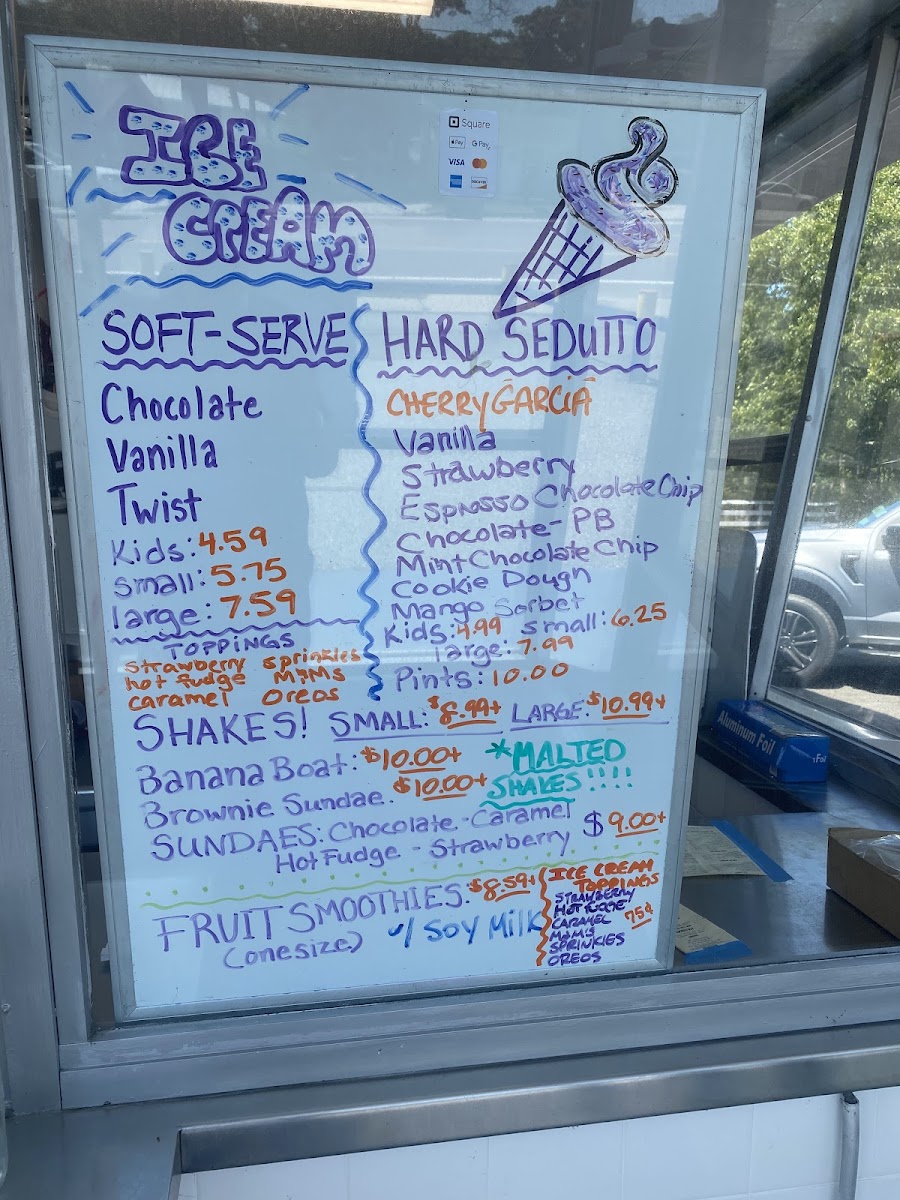 ICE
CREAM
Square
Pay G Pay
VISA
DISCOVER
SOFT-SERVE
Chocolate
Vanilla
Twist
Kids: 4.59
Small: 5.75
large: 7.59
TOPPINGS
Strawberry sprinkles
hot fudge M&Ms
caramel Oreos
HARD SEDUTTO
CHERRY GARCIA
Vanilla
Strawberry
Espresso Chocolate Chip
Chocolate - PB
Mint Chocolate Chip
Cookie Dough
Mango Sorbet
Kids: 4.99 small: 6.25
large: 7.99
Pints: 10.00
SHAKES! SMALL: $8.99+ LARGE: $10.99+
Banana Boat: $10.00+
Brownie Sundae. $10.00+
*MALTED
SHAKES!!!!
SUNDAES: Chocolate - Caramel
Hot Fudge - Strawberry $9.00+
FRUIT SMOOTHIES. $8.59+
(one size) w/ Soy Milk
ICE CREAM
TOPPINGS
STRAWBERRY
HOT FUDGE
CARAMEL 75¢
M&M'S
SPRINKLES
OREOS
Aluminum Foil
Foil